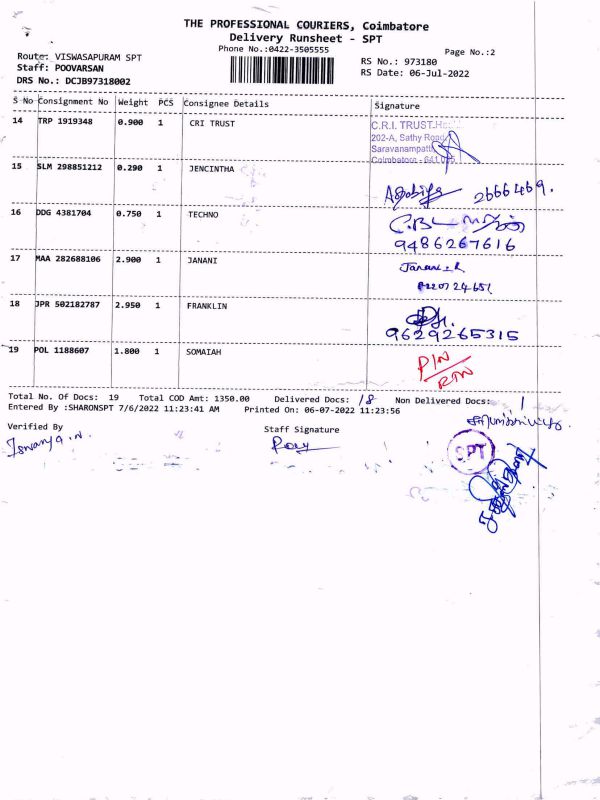 THE PROFESSIONAL COURIERS, Coimbatore
Delivery Runsheet - SPT
Phone No.:0422-3505555
Page No.:2
Route: VISWASAPURAM SPT
Staff: POOVARSAN
DRS No.: DCJB97318002
RS No.: 973180
RS Date: 06-Jul-2022
S No Consignment No Weight PCS Consignee Details Signature
14 TRP 1919348 0.900 1 CRI TRUST
C.R.I. TRUST
202-A, Sathy Road
Saravanampatti
Coimbatore - 641 035
15 SLM 298851212 0.290 1 JENCINTHA
2666469.
16 DDG 4381704 0.750 1 TECHNO
9486267616
17 MAA 282688106 2.900 1 JANANI
18 JPR 502182787 2.950 1 FRANKLIN
9629265315
19 POL 1188607 1.800 1 SOMAIAH
P/N
RTN
Total No. Of Docs: 19 Total COD Amt: 1350.00 Delivered Docs: 18 Non Delivered Docs: 1
Entered By :SHARONSPT 7/6/2022 11:23:41 AM Printed On: 06-07-2022 11:23:56
Verified By
Staff Signature
SPT